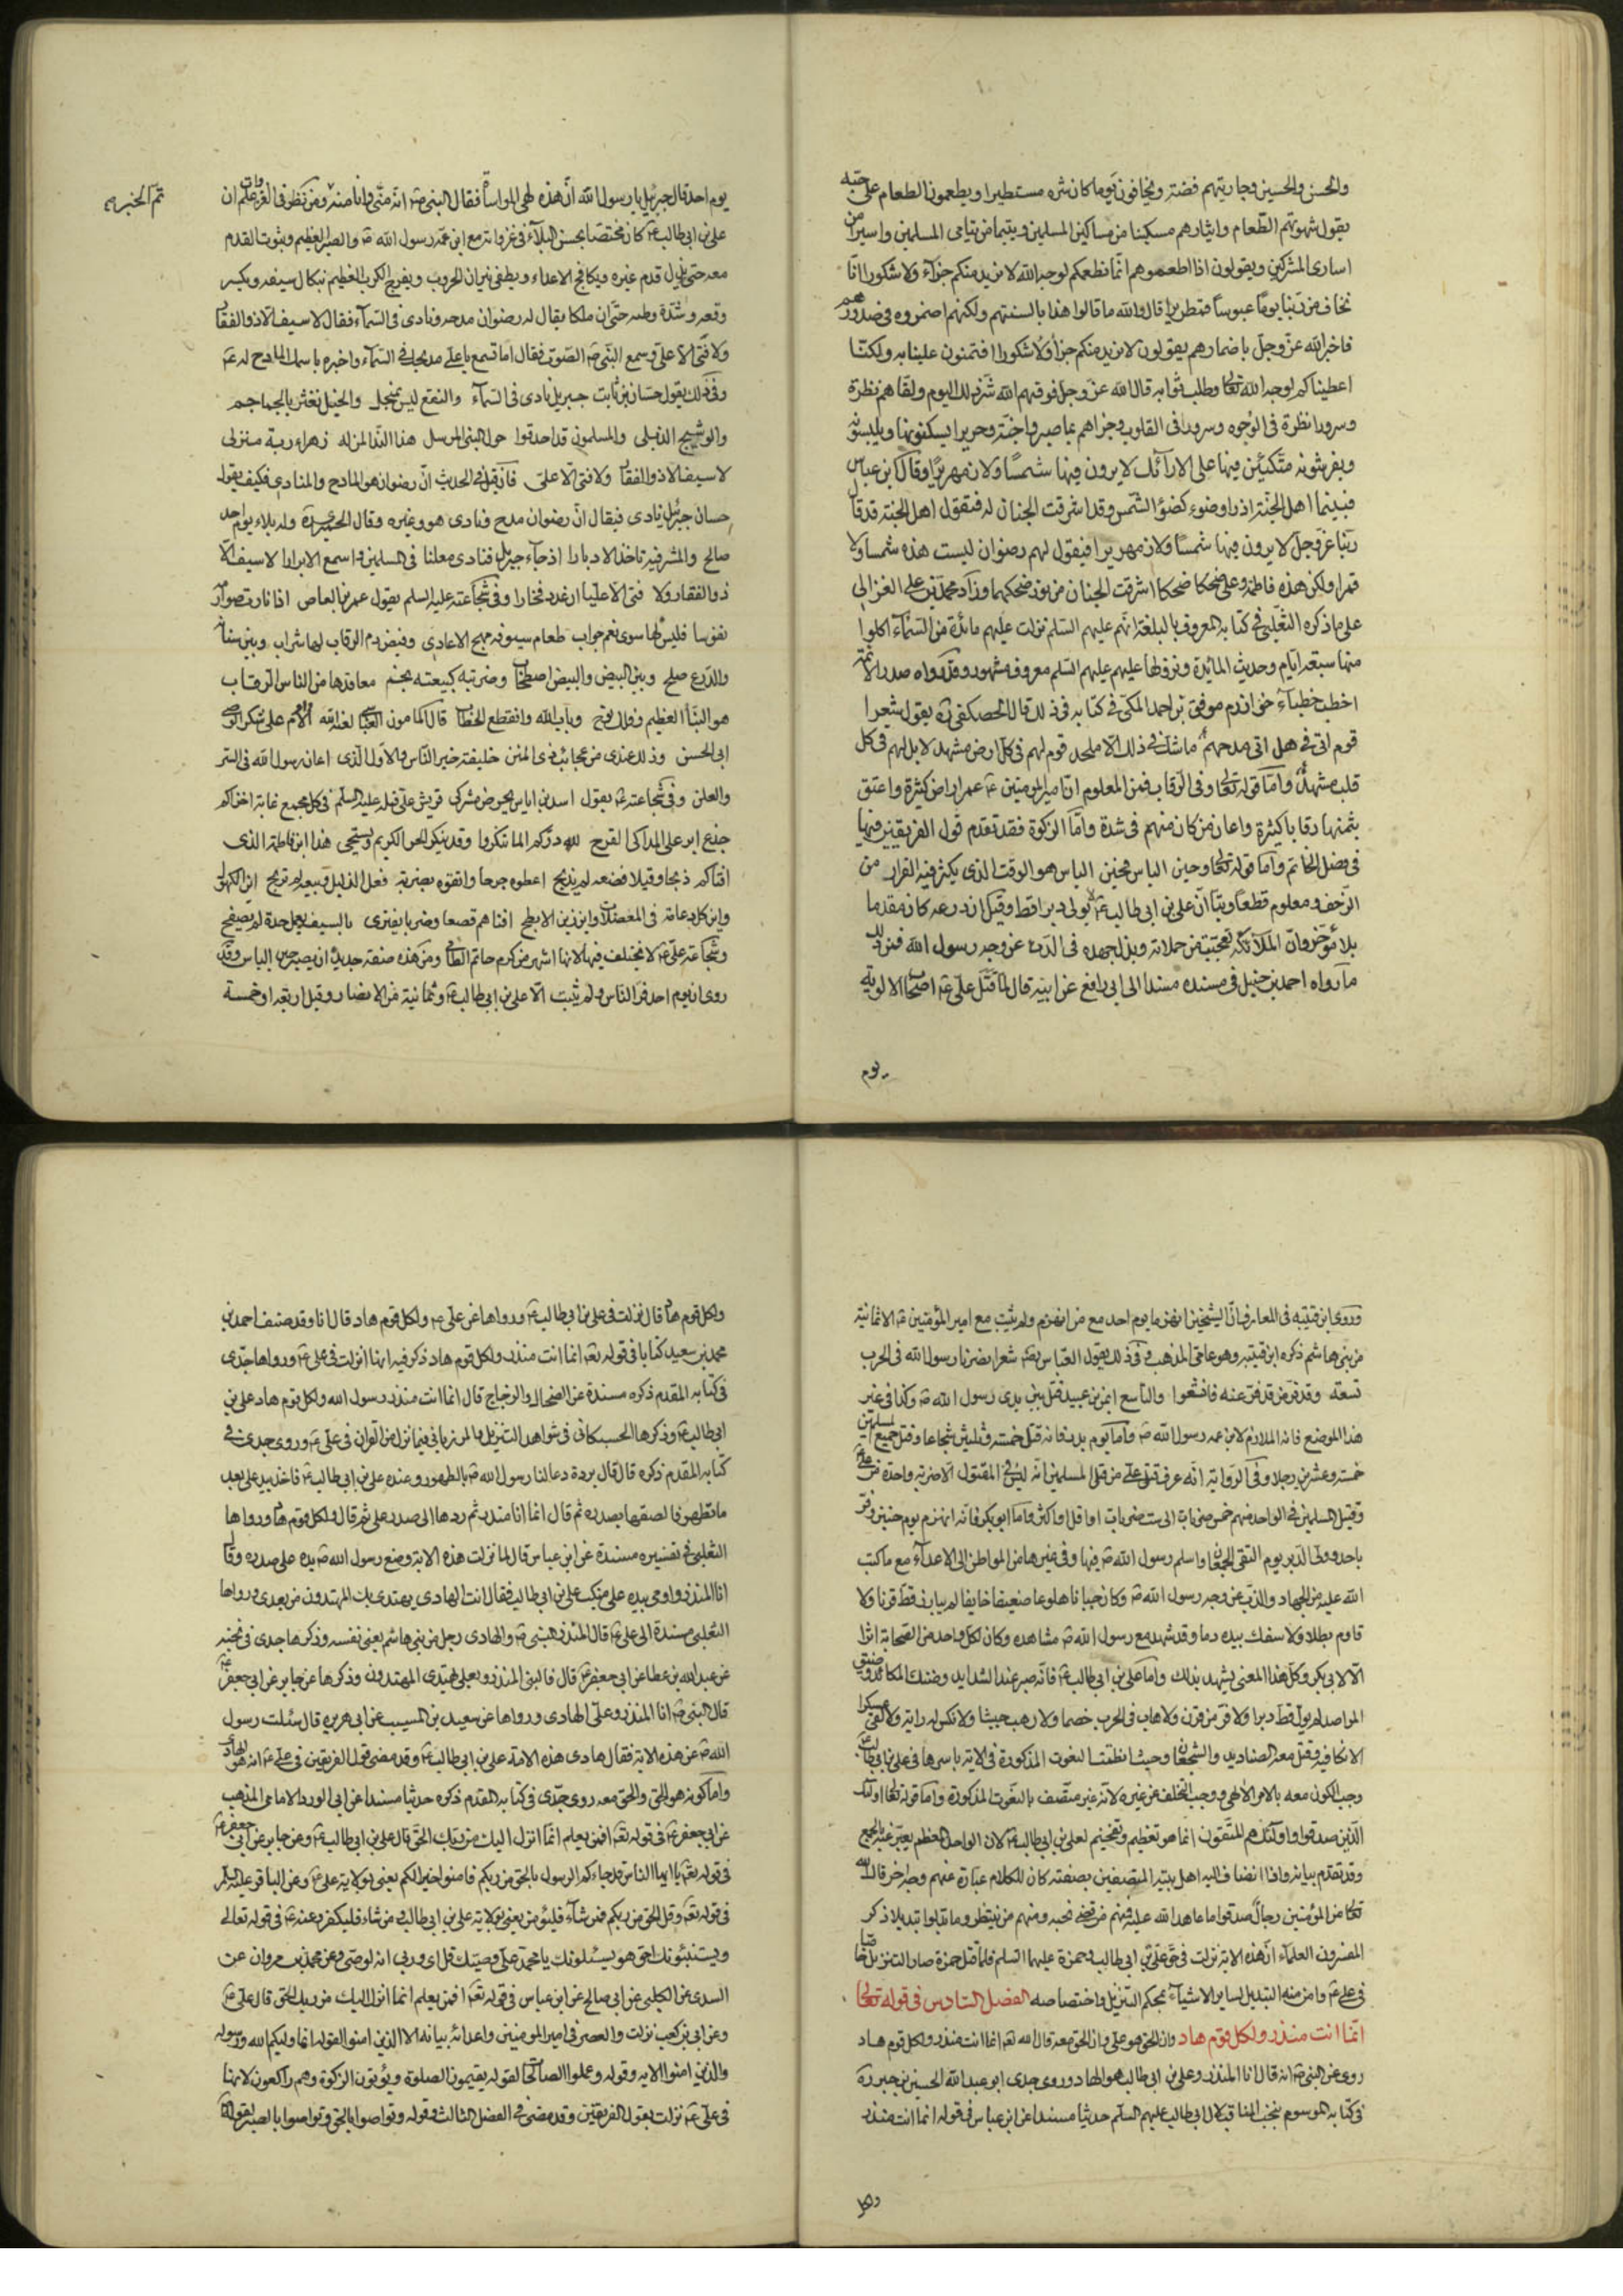 والحسن والحسين وجاريتهم فضة ويخافون يوما كان شره مستطيرا ويطعمون الطعام على حبه
يقول شهوتهم الطعام وايثارهم مسكينا من مساكين المسلمين ويتيما من يتامى المسلمين واسيرا من
اسارى المشركين ويقولون اذا اطعموهم انما نطعمكم لوجه الله لا نريد منكم جزآء ولا شكورا انا
نخاف من ربنا يوما عبوسا قمطريرا قال والله ما قالوا هذا بالسنتهم ولكنهم اضمروه فى صدورهم
فاخبر الله عز وجل باضمارهم يقولون لا نريد منكم جزآء ولا شكورا فتمنون علينا به ولكنا
اعطيناكم لوجه الله تعالى وطلب ثوابه قال الله عز وجل فوقيهم الله شر ذلك اليوم ولقاهم نظرة
وسرورا نظرة فى الوجوه وسرورا فى القلوب وجزاهم بما صبروا جنة وحريرا يسكنونها ويلبسونه
ويفرشونه متكئين فيها على الارآئك لا يرون فيها شمسا ولا زمهريرا وقال ابن عباس
فبينما اهل الجنة اذ راوا ضوء كضوء الشمس وقد اشرقت الجنان له فتقول اهل الجنة قد قال
ربنا عز وجل لا يرون فيها شمسا ولا زمهريرا فيقول لهم رضوان ليست هذه شمسا ولا
قمرا ولكن هذه فاطمة وعلى ضحكا ضحكا اشرقت الجنان من نور ضحكهما وزاد محمد بن على الغزالى
على ما ذكره الثعلبى فى كتابه المعروف بالبلغة انهم عليهم السلم نزلت عليهم مائدة من السمآء اكلوا
منها سبعة ايام وحديث المائدة ونزولها عليهم عليهم السلم معروف مشهور وقد رواه صدر الائمة
اخطب خطبآء خوارزم موفق بن احمد المكى فى كتابه فى ذلك قال الحصكفى ره يقول شعرا
قوم اتى فى هل اتى مدحهم ما شك فى ذلك الا ملحد قوم لهم فى كل ارض مشهد لا بل لهم فى كل
قلب مشهد واما قوله تعالى وفى الرقاب فمن المعلوم ان امير المومنين ع عمر اراض كثيرة واعتق
بثمنها رقابا كثيرة واعان من كان منهم فى شدة واما الزكوة فقد تقدم قول الفريقين فيها
فى فضل الخاتم واما قوله تعالى وحين الباس فحين الباس هو الوقت الذى يكثر فيه الفرار من
الزحف ومعلوم قطعا ويقينا ان على بن ابى طالب ع لا يولى دبرا قط وقيل ان درعه كان مقدما
بلا مؤخر وان الملائكة تعجبت من حملاته وبذل جهده فى الذب عن وجه رسول الله فمن ذلك
ما رواه احمد بن حنبل فى مسنده مسندا الى ابى رافع عن ابيه قال لما قتل على ع اصحاب الالوية
يوم
يوم احد قال جبريل يا رسول الله ان هذه لهى المواساة فقال النبى ص انه منى وانا منه ومن نظر فى الغزوات علم ان
على بن ابى طالب ع كان مختصا بحسن البلآء فى غزواته مع ابن عمه رسول الله ص والصبر العظيم وثبوت القدم
معه حتى تزل قدم غيره ويكافح الاعداء ويطفى نيران الحروب ويفرج الكرب العظيم بنكال سيفه وبكبر
وقعه وشدة وطئه حتى ان ملكا يقال له رضوان مدحه ونادى فى السمآء فقال لا سيف الا ذو الفقار
ولا فتى الا على وسمع النبى ص الصوت فقال اما تسمع يا على مديحك فى السمآء واخبره باسم الملك المادح له ع
وفى ذلك يقول حسان بن ثابت جبريل نادى فى السمآء والنقع ليس بمنجل والخيل تعثر بالجماجم
والوشيج الذبل والمسلمون قد احدقوا حول النبى المرسل هذا الندا لمن له زهراء ربة منزل
لا سيف الا ذو الفقار ولا فتى الا على فان قيل فى الحديث ان رضوان هو المادح والمنادى فكيف يقول
حسان جبرئيل نادى فيقال ان رضوان مدح ونادى هو وغيره وقال الحميرى ره وله بلاء يوم احد
صالح والمشرفية تاخذ الادبارا اذ جآء جبريل فنادى معلنا فى المسلمين واسمع الابرارا لا سيف الا
ذو الفقار ولا فتى الا عليا ان عددت فخارا وفى شجاعته عليه السلم يقول عمرو بن العاص اذا نادت صوارمه
نفوسا فليس لها سوى نعم جواب طعام سيوفه مهج الاعادى وفيض دم الرقاب لها شراب وبين سنانه
والدرع صلح وبين البيض والبيض اصطحاب وضربته كبيعته بخم معاقدها من الناس الرقاب
هو النبأ العظيم وفلك نوح وباب الله وانقطع الخطاب قال المامون العباسى لعنه الله الام على شكر الوصى
ابى الحسن وذلك عندى من عجائب ذى المنن خليفة خير الناس والاول الذى اعان رسول الله فى السر
والعلن وفى شجاعته ع يقول اسد بن اياس يحرض مشركى قريش على قتله عليه السلم فى كل مجمع غاية اخزاكم
جذع ابر على المذاكى القرح لله دركم الما تنكروا وقد ينكر الحر الكريم ويستحى هذا ابن فاطمة الذى
افناكم ذبحا وقتلا قصعة لم يذبح اعطوه خرجا واتقوه بضربة فعل الذليل وبيعة لم تربح اين الكهول
واين كل دعامة فى المعضلات واين زين الابطح افناهم قصعا وضربا يفترى بالسيف يعمل حده لم يصفح
وشجاعته على ع لا تختلف فيها لانها اشهر من كرم حاتم الطائى ومن هذه صفته جدير ان يصبر حين الباس وقد
روى ان يوم احد فر الناس ولم يثبت الا على بن ابى طالب ع وثمانية من الانصار وقيل اربعة او خمسة
وروى ابن قتيبة فى المعارف ان الشيخين انهزما يوم احد مع من انهزم ولم يثبت مع امير المؤمنين ع الا ثمانية
من بنى هاشم ذكره ابن قتيبة وهو عامى المذهب وفى ذلك يقول العباس رضه شعرا نصرنا رسول الله فى الحرب
تسعة وقد فر من قد فر عنه فاقشعوا والتاسع ايمن بن عبيد قتل بين يدى رسول الله ص وكذا فى غير
هذا الموضع فانه الملازم لابن عمه رسول الله ص واما يوم بدر فانه قتل خمسة وثلثين شجاعا وقتل جميع المسلمين
خمسة وعشرين رجلا وفى الرواية انه عرف قتلى على من قتلى المسلمين انه ليس فى المقتول الا ضربة واحدة من على ع
وقتيل المسلمين فى الواحد منهم خمس ضربات الى ست ضربات او اقل او اكثر واما ابو بكر فانه انهزم يوم حنين وفر
باحد وولى الدبر يوم التقى الجمعان واسلم رسول الله ص فيها وفى غيرها من المواطن الى الاعدآء مع ما كتب
الله عليه من الجهاد والذب عن وجه رسول الله ص وكان جبانا هلوعا ضعيفا خايفا لم يبارز قط قرنا ولا
قاوم بطلا ولا سفك بيده دما وقد شهد مع رسول الله ص مشاهده وكان لكل واحد من الصحابة اثرا
الا لابى بكر وكل هذا المعنى يشهد بذلك واما على بن ابى طالب ع فانه صبر عند الشدايد وضنك المكائد وضيق
المراصد لم يول قط دبرا ولا فر من قرن ولا هاب فى الحرب خصما ولا رهب جيشا ولا نكس له راية ولا لقى عسكرا
الا نكا فيه وقتل معه الصناديد والشجعان وحيث انطقت النعوت المذكورة فى الاية باسرها فى على بن ابى طالب ع
وجب الكون معه بالامر الالهى ووجب التخلف عن غيره لانه غير متصف بالنعوت المذكورة واما قوله تعالى اولئك
الذين صدقوا واولئك هم المتقون انما هو تعظيم وتفخيم لعلى بن ابى طالب ع لان الواحد المعظم يعبر عنه بالجمع
وقد تقدم بيانه واذا انضاف اليه اهل بيته المتصفين بصفته كان للكلام عبارة عنهم وجه اخر قال الله
تعالى من المؤمنين رجال صدقوا ما عاهدوا الله عليه فمنهم من قضى نحبه ومنهم من ينتظر وما بدلوا تبديلا ذكر
المفسرون العلمآء ان هذه الاية نزلت فى حق على بن ابى طالب وحمزة عليهما السلم فلما قتل حمزة صار التنزيل خاصا
فى على ع وامن منه التبديل لساير الاشيآء بمحكم التنزيل واختصاصه الفصل السادس فى قوله تعالى
انما انت منذر ولكل قوم هاد وان الحق هو على وان الحق معه قال الله تعه انما انت منذر ولكل قوم هاد
روى عن النبى ص انه قال انا المنذر وعلى بن ابى طالب هو الهاد وروى جدى ابو عبد الله الحسين بن جبر ره
فى كتابه الموسوم بنخب المناقب لال ابى طالب عليهم السلم حديثا مسندا عن ابن عباس فى قوله انما انت منذر
ولكل قوم هاد قال نزلت فى على بن ابى طالب ع ورواها عن على ع ولكل قوم هاد قال انا وقد صنف احمد بن
محمد بن سعيد كتابا فى قوله تعه انما انت منذر ولكل قوم هاد ذكر فيه انها انزلت فى على ع ورواها جدى
فى كتابه المقدم ذكره مسندة عن الضحاك والزجاج قال انما انت منذر رسول الله ولكل قوم هاد على بن
ابى طالب ع وذكرها الحسكانى فى شواهد التنزيل والمرزبانى فيما نزل من القران فى على ع وروى جدى فى
كتابه المقدم ذكره قال قال بردة دعا لنا رسول الله ص بالطهور وعنده على بن ابى طالب ع فاخذ بيد على بعد
ما تطهر فالصقها بصدره ثم قال انما انا منذر ثم ردها الى صدر على ثم قال ولكل قوم هاد ورواها
الثعلبى فى تفسيره مسندة عن ابن عباس قال لما نزلت هذه الاية وضع رسول الله ص يده على صدره وقال
انا المنذر واومى بيده على منكب على بن ابى طالب فقال انت الهادى يهتدى بك المهتدون من بعدى ورواها
الثعلبى مسندة الى على ع قال المنذر النبى ص والهادى رجل من بنى هاشم يعنى نفسه وذكرها جدى فى نخبه
عن عبد الله بن عطا عن ابى جعفر ع قال فالنبى المنذر وبعلى يهتدى المهتدون وذكرها عن جابر عن ابى جعفر ع
قال النبى ص انا المنذر وعلى الهادى ورواها عن سعيد بن المسيب عن ابى هريره قال سئلت رسول
الله ص عن هذه الاية فقال هادى هذه الامة على بن ابى طالب ع وقد مضى قول الفريقين فى على ع انه هو الهاد
واما كونه هو الحق والحق معه روى جدى فى كتابه المقدم ذكره حديثا مسندا عن ابى الورد الامامى المذهب
عن ابى جعفر ع فى قوله تعه افمن يعلم انما انزل اليك من ربك الحق قال على بن ابى طالب ع وعن جابر عن ابى جعفر ع
فى قوله تعه يا ايها الناس قد جاءكم الرسول بالحق من ربكم فامنوا خيرا لكم يعنى بولاية على ع وعن الباقر عليه السلم
فى قوله تعه وقل الحق من ربكم فمن شآء فليؤمن يعنى بولاية على بن ابى طالب ومن شاء فليكفر وعنه ع فى قوله تعالى
ويستنبئونك احق هو يسئلونك يا محمد على وصيك قل اى وربى انه لوصى وعن محمد بن مروان عن
السدى عن الكلبى عن ابى صالح عن ابن عباس فى قوله تعه افمن يعلم انما انزل اليك من ربك الحق قال على ع
وعن ابى بن كعب نزلت والعصر فى امير المومنين واعدائه بيانه الا الذين امنوا لقوله انما وليكم الله ورسوله
والذين امنوا الايه وقوله وعملوا الصالحات لقوله يقيمون الصلوة ويؤتون الزكوة وهم راكعون لانها
فى على ع نزلت بقول الفريقين وقد مضى فى الفصل الثالث وقوله وتواصوا بالحق وتواصوا بالصبر لقوله